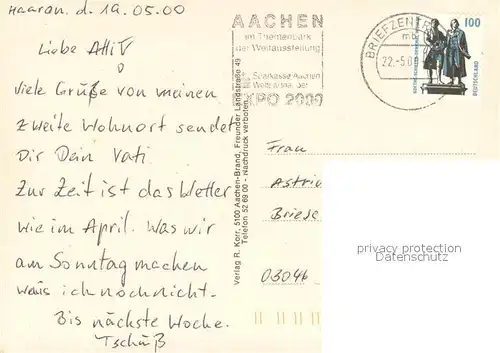 Haaran. d. 19.05.00
Liebe
viele Grüße von meinen
zweite Wohnort sendet
Dir Dein Vati.
Zur Zeit ist das Wetter
wie im April. Was wir
am Sonntag machen
weis ich noch nicht.
Bis nächste Woche.
Tschüß
Verlag R. Korr, 5100 Aachen-Brand, Freunder Landstraße 45
Telefon 52 69 00 - Nachdruck verboten
AACHEN
im Themenpark
der Weltausstellung
Sparkasse Aachen
Weltpartner der
EXPO 2000
BRIEFZENTR
22.-5.0
100
DEUTSCHLAND
Frau
Astri
Briese
03046
privacy protection
Datenschutz